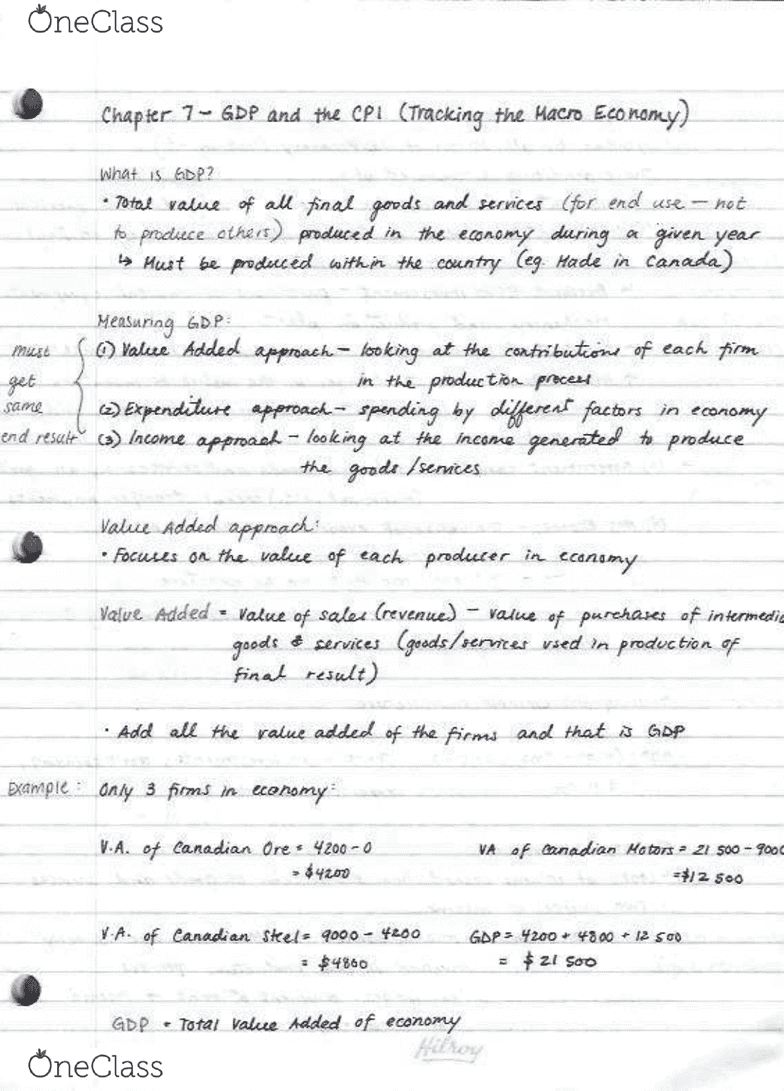 OneClass
Chapter 7 - GDP and the CPI (Tracking the Macro Economy)
What is GDP?
• Total value of all final goods and services (for end use - not
to produce others) produced in the economy during a given year
↳ Must be produced within the country (eg. Made in Canada)
Measuring GDP:
must get same end result
(1) Value Added approach - looking at the contributions of each firm
in the production process
(2) Expenditure approach - spending by different factors in economy
(3) Income approach - looking at the income generated to produce
the goods/services
Value Added approach:
• Focuses on the value of each producer in economy
Value Added = Value of sales (revenue) - value of purchases of intermedia
goods & services (goods/services used in production of
final result)
• Add all the value added of the firms and that is GDP
Example: Only 3 firms in economy:
V.A. of Canadian Ore = 4200 - 0
= $4200
VA of Canadian Motors = 21 500 - 9000
= $12 500
V.A. of Canadian Steel = 9000 - 4200
= $4800
GDP = 4200 + 4800 + 12 500
= $21 500
GDP = Total Value Added of economy
Hilroy
OneClass